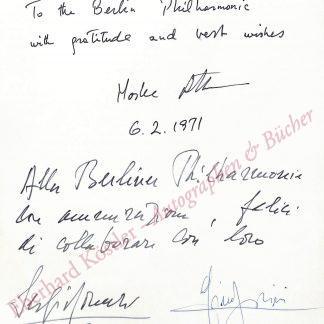 To the Berlin Philharmonic
with gratitude and best wishes
Moshe
6.2.1971
Alla Berliner Philharmonie
con ammirazione, felici
di collaborare con loro
Eberhard Köstler - Autographen & Bücher